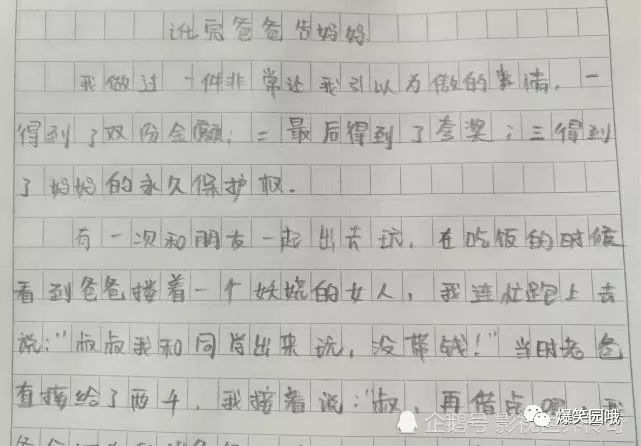 讹完爸爸告妈妈
我做过一件非常让我引以为傲的事情，一
得到了双份金额；二最后得到了夸奖；三得到
了妈妈的永久保护权．
有一次和朋友一起出去玩，在吃饭的时候
看到爸爸搂着一个妖娆的女人，我连忙跑上去
说："叔叔我和同学出来玩，没带钱！"当时老爸
直接给了两千，我接着说："叔，再借点
企鹅号 影视
爆笑园哦